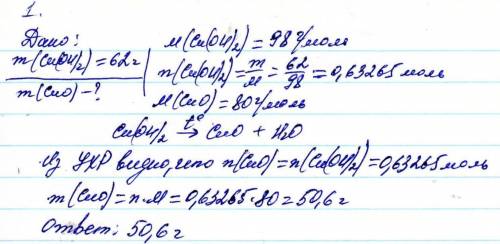 1.
Дано:
m(Cu(OH)₂)=62г
m(CuO)-?
M(Cu(OH)₂)=98г/моль
n(Cu(OH)₂)=m/M=62/98=0,63265моль
M(CuO)=80г/моль
Cu(OH)₂ t°→ CuO + H₂O
Из УХР видно, что n(CuO)=n(Cu(OH)₂)=0,63265моль
m(CuO)=n·M=0,63265·80=50,6г
Ответ: 50,6г